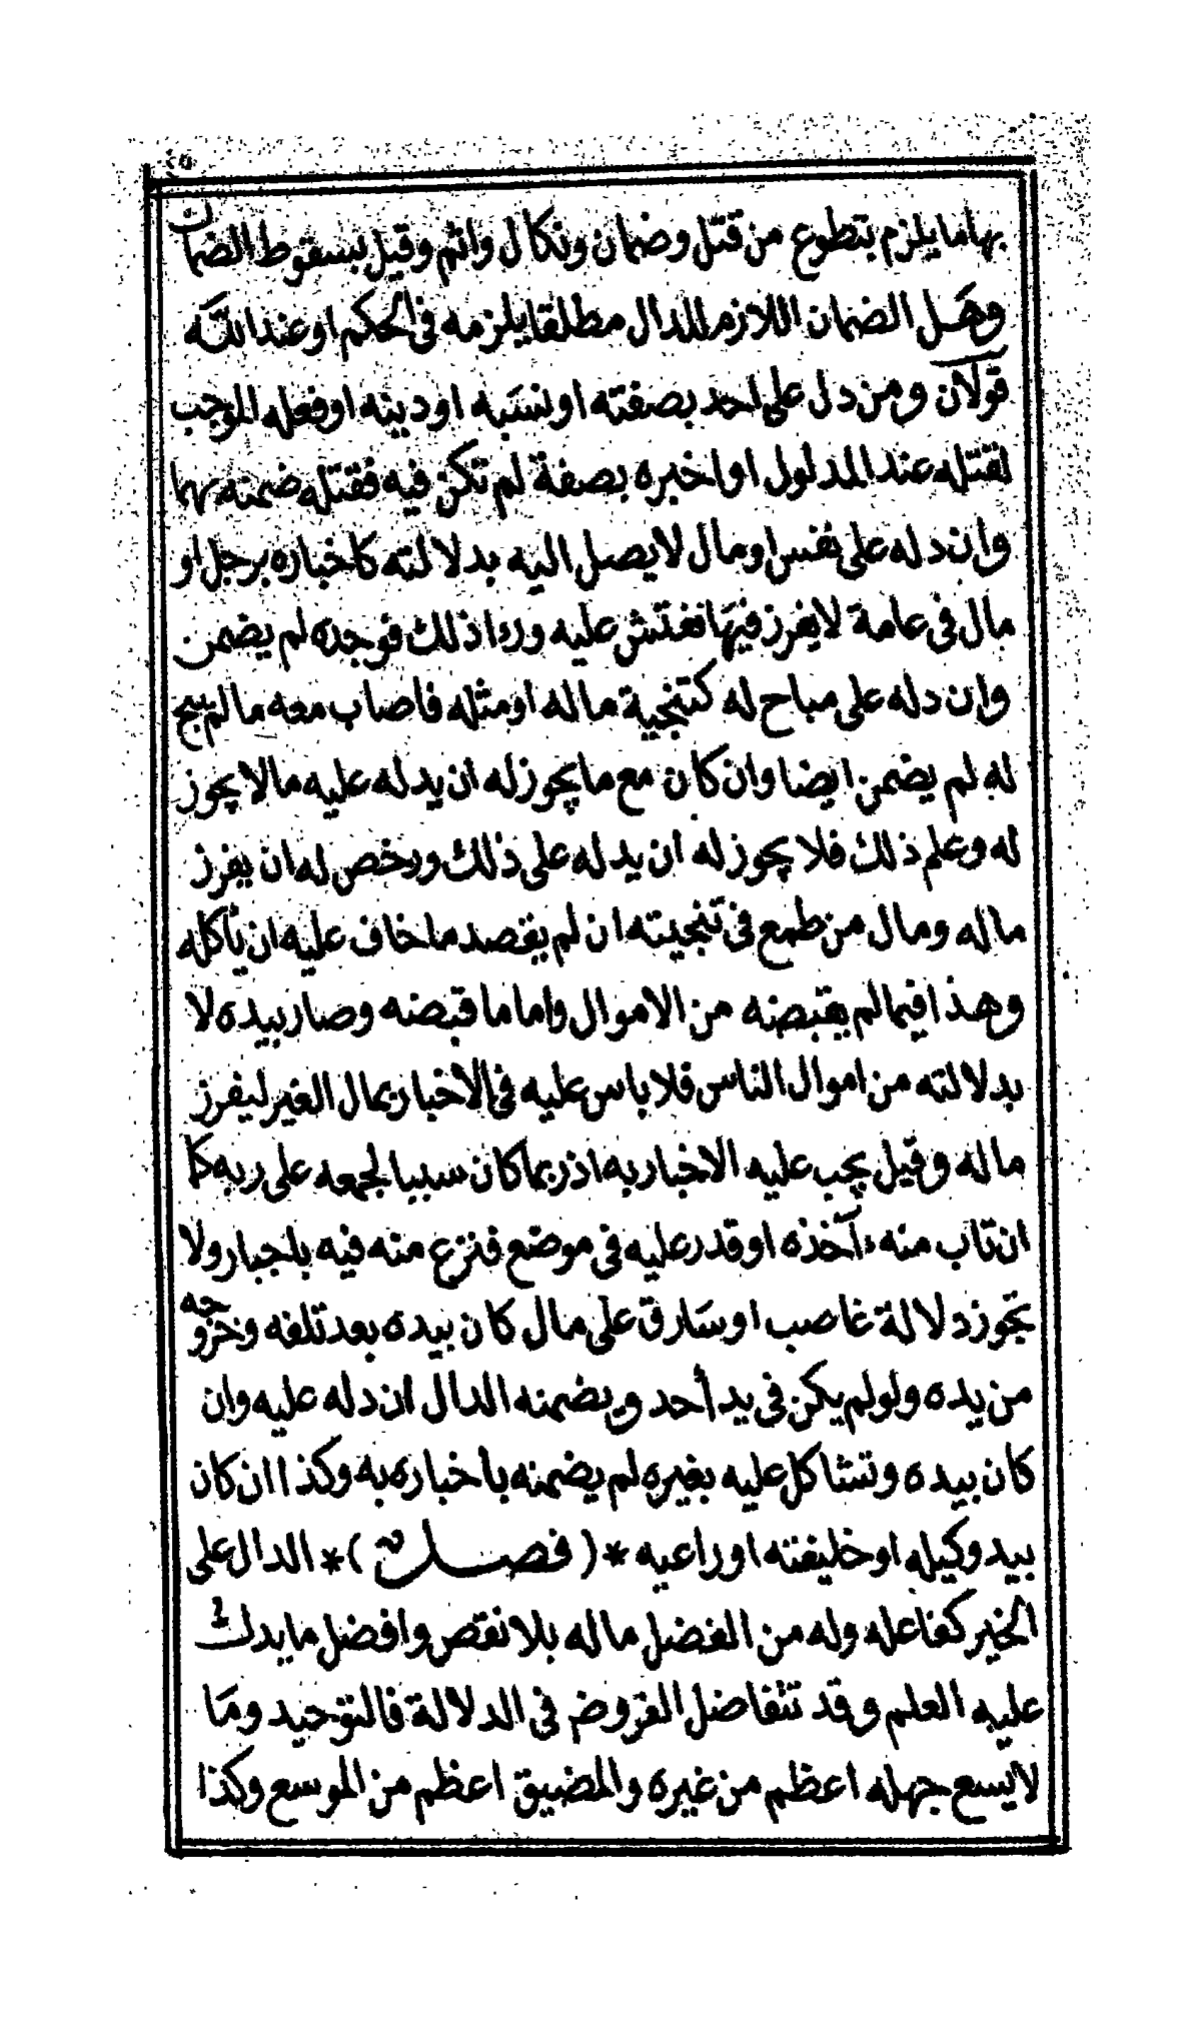 ٤٥
بها ما يلزم بتطوع من قتل وضمان ونكال واثم وقيل بسقوط الضمان
وهل الضمان اللازم للدال مطلقا يلزمه في الحكم او عند الله
قولان ومن دل على احد بصفته او نسبه او دينه او فعله الموجب
لقتله عند المدلول او اخبره بصفة لم تكن فيه فقتله ضمنه بهما
وان دله على نفس او مال لا يصل اليه بدلالته كاخباره برجل او
مال في عامة لا يفرز فيها ففتش عليه وراء ذلك فوجده لم يضمن
وان دله على مباح له كتنجية ماله او مثله فاصاب معه ما لم يبح
له لم يضمن ايضا وان كان مع ما يجوز له ان يدله عليه مالا يجوز
له وعلم ذلك فلا يجوز له ان يدله على ذلك ورخص له ان يفرز
ماله ومال من طمع في تنجيته ان لم يقصد ما خاف عليه ان يأكله
وهذا فيما لم يقبضه من الاموال واما ما قبضه وصار بيده لا
بدلالته من اموال الناس فلا باس عليه في الأخبار بمال الغير ليفرز
ماله وقيل يجب عليه الاخبار به اذ ربما كان سببا لجمعه على ربه كما
ان تاب منه ءاخذه او قدر عليه في موضع فنزع منه فيه باجبار ولا
تجوز دلالة غاصب او سارق على مال كان بيده بعد تلفه وخروجه
من يده ولو لم يكن في يد أحد ويضمنه الدال ان دله عليه وان
كان بيده وتشاكل عليه بغيره لم يضمنه بأخباره به وكذا ان كان
بيد وكيله او خليفته او راعيه *( فصل )* الدال على
الخير كفاعله وله من الفضل ماله بلا نقص وافضل ما يدلك
عليه العلم وقد تتفاضل الفروض في الدلالة فالتوحيد وما
لا يسع جهله اعظم من غيره والمضيق اعظم من الموسع وكذا